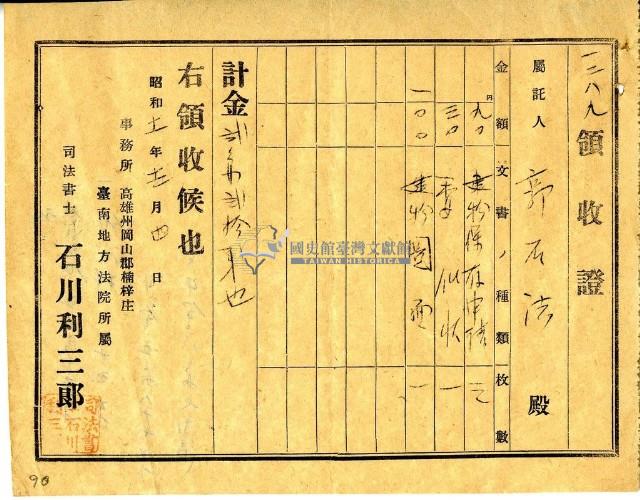 一二八九
領收證
屬託人 郭石法 殿
金額 文書ノ種類 枚數
円
九〇 建物保存申請 三
三〇 委任状 一
一〇〇 建物図面 一
計金弐円弐拾 也
右領收候也
昭和十一年 月四日
事務所 高雄州岡山郡楠梓庄
臺南地方法院所屬
司法書士 石川利三郎
國史館臺灣文獻館
TAIWAN HISTORICA
90